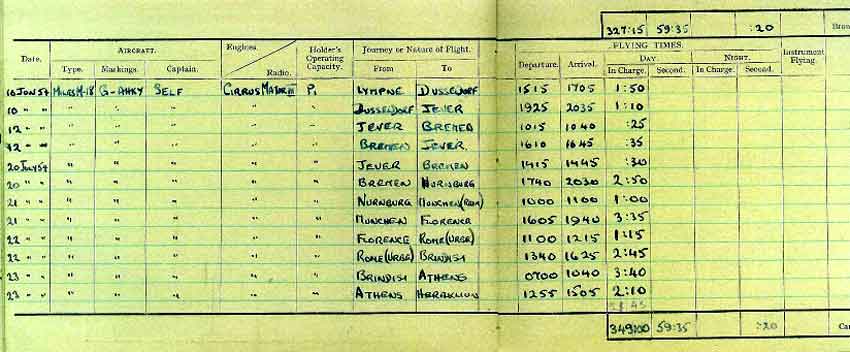 327:15 59:35 :20 Brou
Date. AIRCRAFT. Engines. Radio. Holder's Operating Capacity. Journey or Nature of Flight. FLYING TIMES. Instrument Flying.
Type. Markings. Captain. From To Departure. Arrival. DAY NIGHT.
In Charge. Second. In Charge. Second.
10 JUN 54 MILES M-18 G-AHKY SELF CIRRUS MAJOR III P1 LYMPNE DUSSELDORF 1515 1705 1:50
10 " " " " " " " DUSSELDORF JEVER 1925 2035 1:10
12 " " " " " " " JEVER BREMEN 1015 1040 :25
12 " " " " " " " BREMEN JEVER 1610 1645 :35
20 JULY 54 " " " " " JEVER BREMEN 1415 1445 :30
20 " " " " " " " BREMEN NURNBURG 1740 2030 2:50
21 " " " " " " " NURNBURG MUNCHEN 1000 1100 1:00
21 " " " " " " " MUNCHEN FLORENCE 1605 1940 3:35
22 " " " " " " " FLORENCE ROME (URBE) 1100 1215 1:15
22 " " " " " " " ROME (URBE) BRINDISI 1340 1625 2:45
23 " " " " " " " BRINDISI ATHENS 0700 1040 3:40
23 " " " " " " " ATHENS HERAKLION 1255 1505 2:10
349:00 59:35 :20 Car